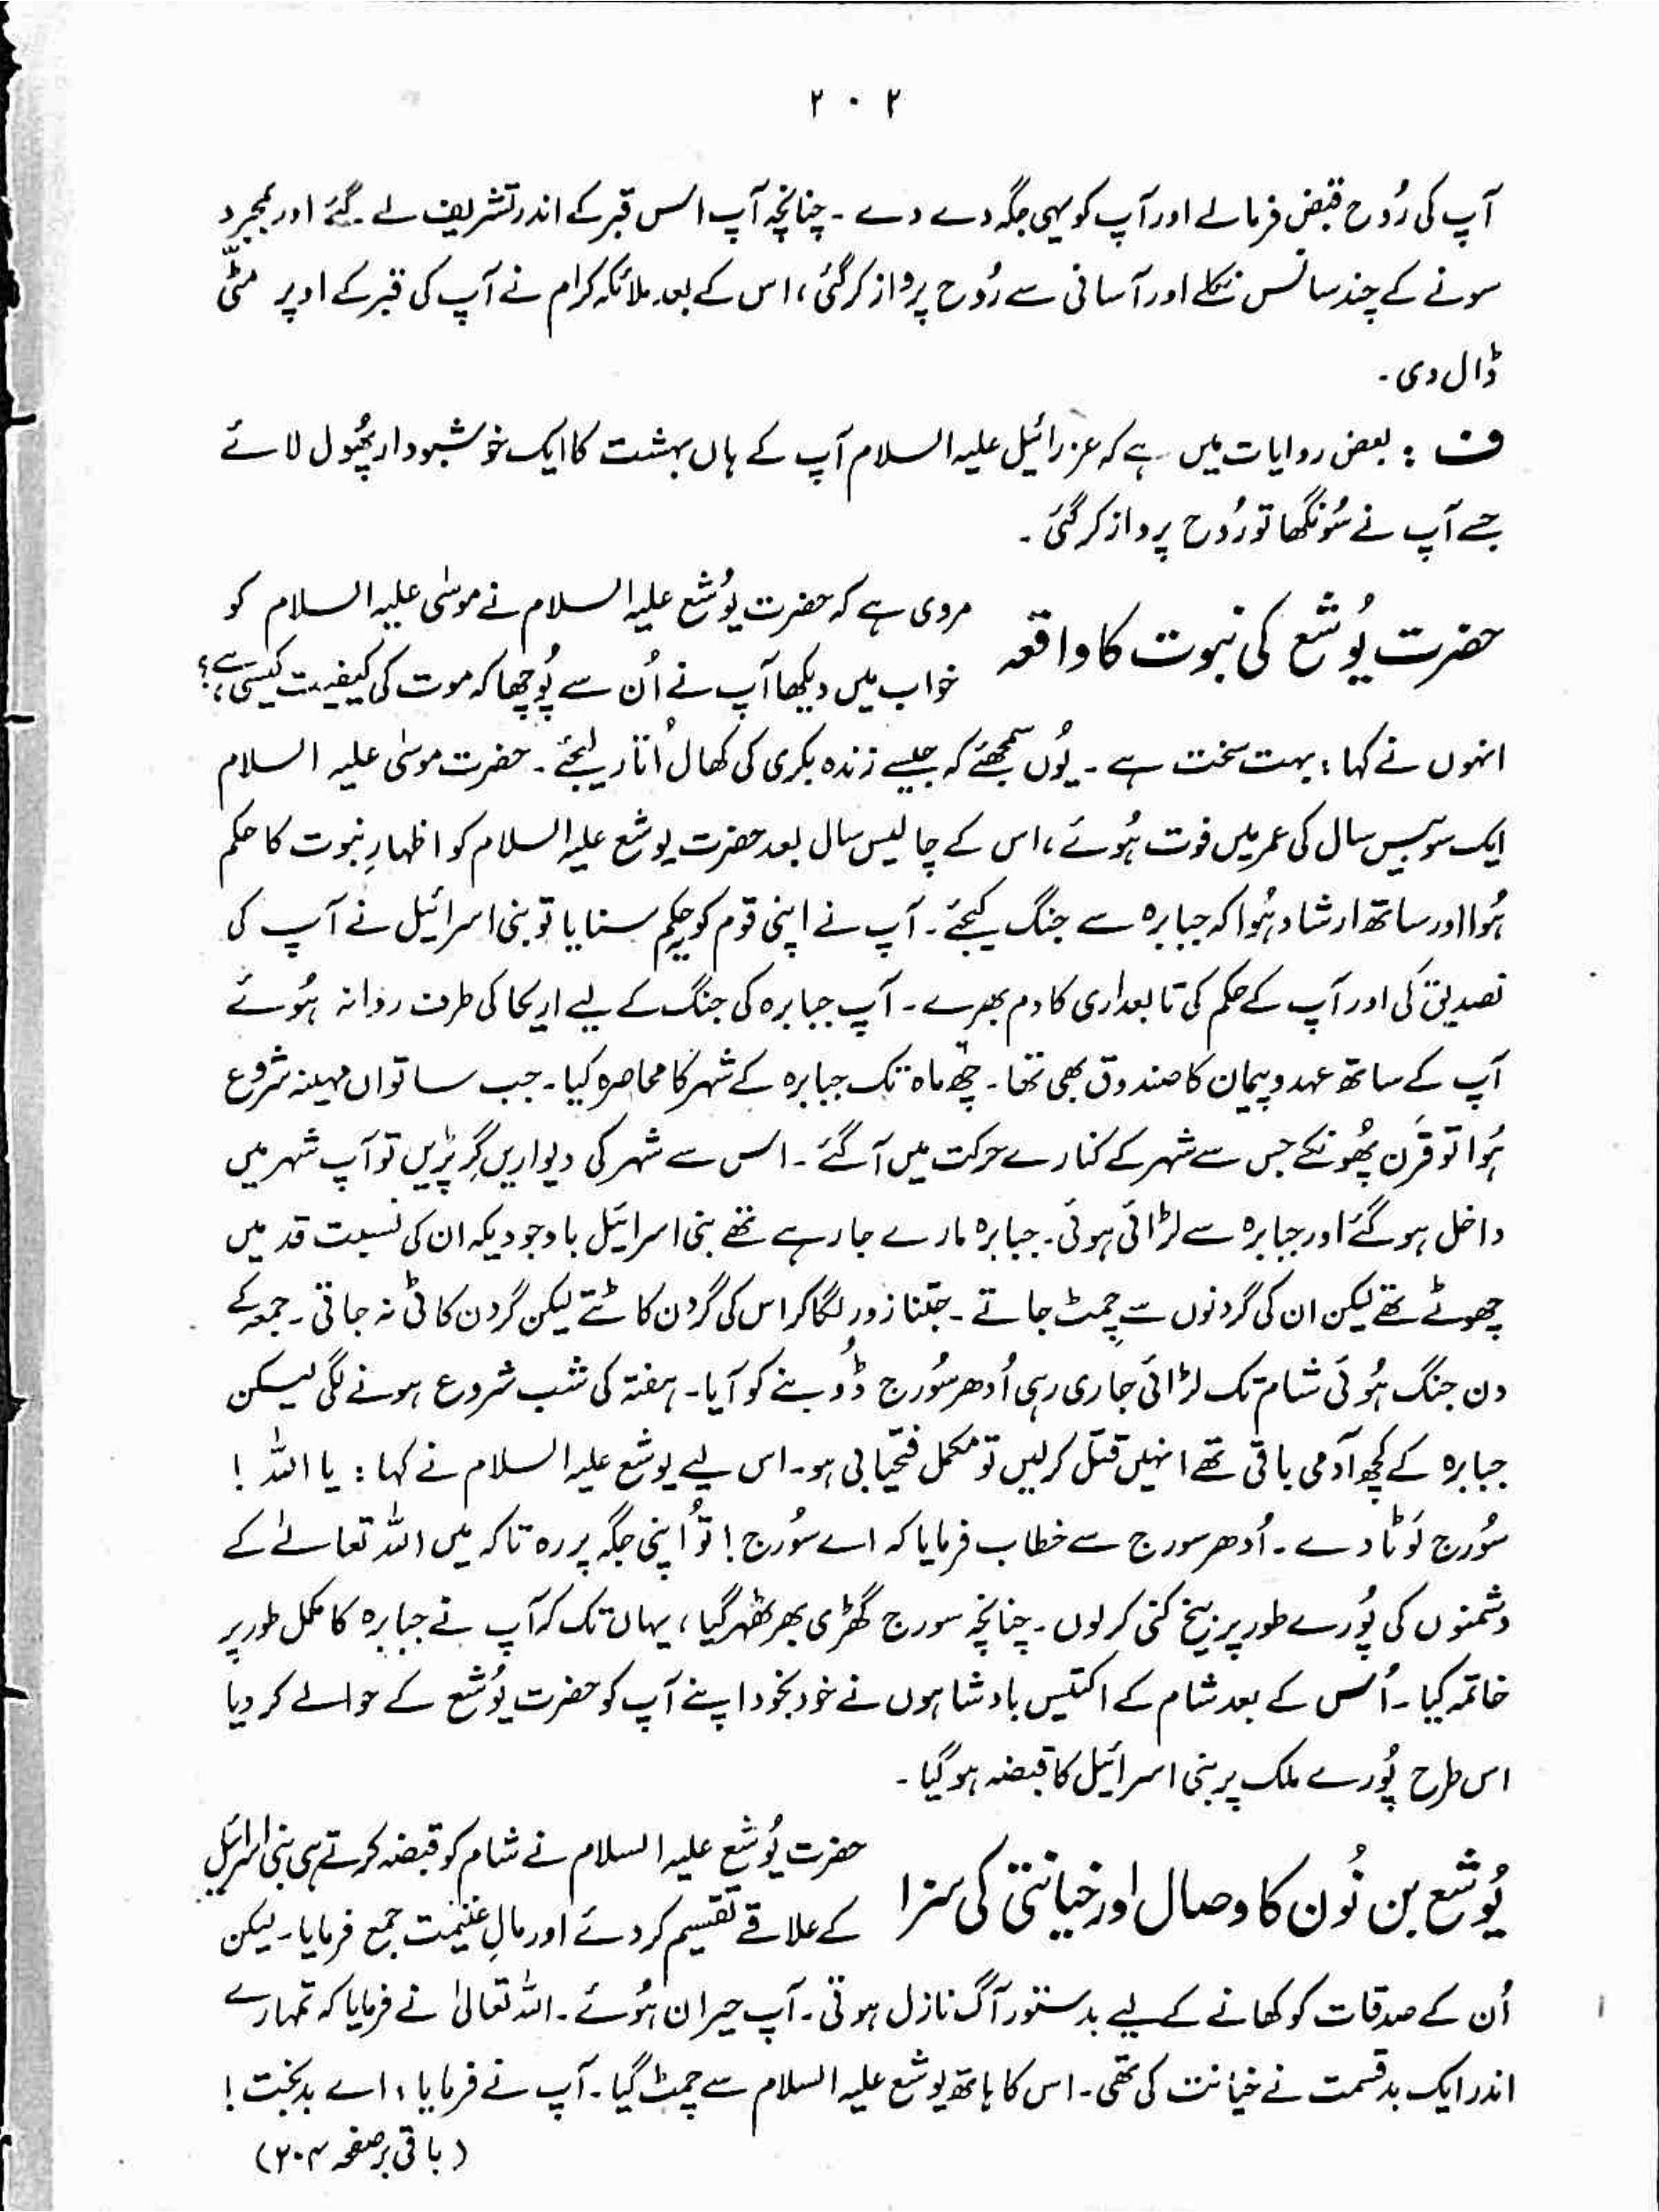 ۲۰۲
آپ کی رُوح قبض فرمالے اور آپ کو یہی جگہ دے دے ۔ چنانچہ آپ اس قبر کے اندر تشریف لے گئے اور بمجرد
سونے کے چند سانس نکلے اور آسانی سے رُوح پرواز کر گئی ، اس کے بعد ملائکہ کرام نے آپ کی قبر کے اوپر مٹّی
ڈال دی ۔
ف : بعض روایات میں ہے کہ عزرائیل علیہ السلام آپ کے ہاں بہشت کا ایک خوشبودار پھُول لائے
جسے آپ نے سُونگھا تو رُوح پرواز کر گئی ۔
حضرت یُوشع کی نبوت کا واقعہ
مروی ہے کہ حضرت یُوشع علیہ السلام نے موسٰی علیہ السلام کو
خواب میں دیکھا آپ نے اُن سے پُوچھا کہ موت کی کیفیت کیسی ہے ؟
انہوں نے کہا : بہت سخت ہے ۔ یُوں سمجھئے کہ جیسے زندہ بکری کی کھال اُتار لیجئے ۔ حضرت موسٰی علیہ السلام
ایک سو بیس سال کی عمر میں فوت ہُوئے ، اس کے چالیس سال بعد حضرت یوشع علیہ السلام کو اظہارِ نبوت کا حکم
ہُوا اور ساتھ ارشاد ہُوا کہ جبابرہ سے جنگ کیجئے ۔ آپ نے اپنی قوم کو حکم سنایا تو بنی اسرائیل نے آپ کی
تصدیق کی اور آپ کے حکم کی تابعداری کا دم بھرے ۔ آپ جبابرہ کی جنگ کے لیے اریحا کی طرف روانہ ہُوئے
آپ کے ساتھ عہد و پیمان کا صندوق بھی تھا ۔ چھ ماہ تک جبابرہ کے شہر کا محاصرہ کیا ۔ جب ساتواں مہینہ شروع
ہُوا تو قَرن پھُونکے جس سے شہر کے کنارے حرکت میں آ گئے ۔ اس سے شہر کی دیواریں گِر پڑیں تو آپ شہر میں
داخل ہو گئے اور جبابرہ سے لڑائی ہوئی ۔ جبابرہ مارے جا رہے تھے بنی اسرائیل باوجودیکہ ان کی نسبت قد میں
چھوٹے تھے لیکن ان کی گردنوں سے چمٹ جاتے ۔ جتنا زور لگا کر اس کی گردن کاٹتے لیکن گردن کاٹی نہ جاتی ۔ جمعہ کے
دن جنگ ہُوئی شام تک لڑائی جاری رہی اُدھر سُورج ڈُوبنے کو آیا ۔ ہفتہ کی شب شروع ہونے لگی لیکن
جبابرہ کے کچھ آدمی باقی تھے انہیں قتل کر لیں تو مکمل فتحیابی ہو ۔ اس لیے یوشع علیہ السلام نے کہا : یا اللہ !
سُورج لَوٹا دے ۔ اُدھر سورج سے خطاب فرمایا کہ اے سُورج ! تُو اپنی جگہ پر رہ تاکہ میں اللہ تعالےٰ کے
دشمنوں کی پُورے طور پر بیخ کنی کر لوں ۔ چنانچہ سورج گھڑی بھر ٹھہر گیا ، یہاں تک کہ آپ نے جبابرہ کا مکمل طور پر
خاتمہ کیا ۔ اُس کے بعد شام کے اکتیس بادشاہوں نے خود بخود اپنے آپ کو حضرت یُوشع کے حوالے کر دیا
اس طرح پُورے ملک پر بنی اسرائیل کا قبضہ ہو گیا ۔
یُوشع بن نُون کا وصال اور خیانتی کی سزا
حضرت یُوشع علیہ السلام نے شام کو قبضہ کرتے ہی بنی اسرائیل
کے علاقے تقسیم کر دئے اور مالِ غنیمت جمع فرمایا ۔ لیکن
اُن کے صدقات کو کھانے کے لیے بدستور آگ نازل ہوتی ۔ آپ حیران ہُوئے ۔ اللہ تعالیٰ نے فرمایا کہ تمہارے
اندر ایک بدقسمت نے خیانت کی تھی ۔ اس کا ہاتھ یوشع علیہ السلام سے چمٹ گیا ۔ آپ نے فرمایا : اے بدبخت !
(باقی بر صفحہ ۲۰۴)